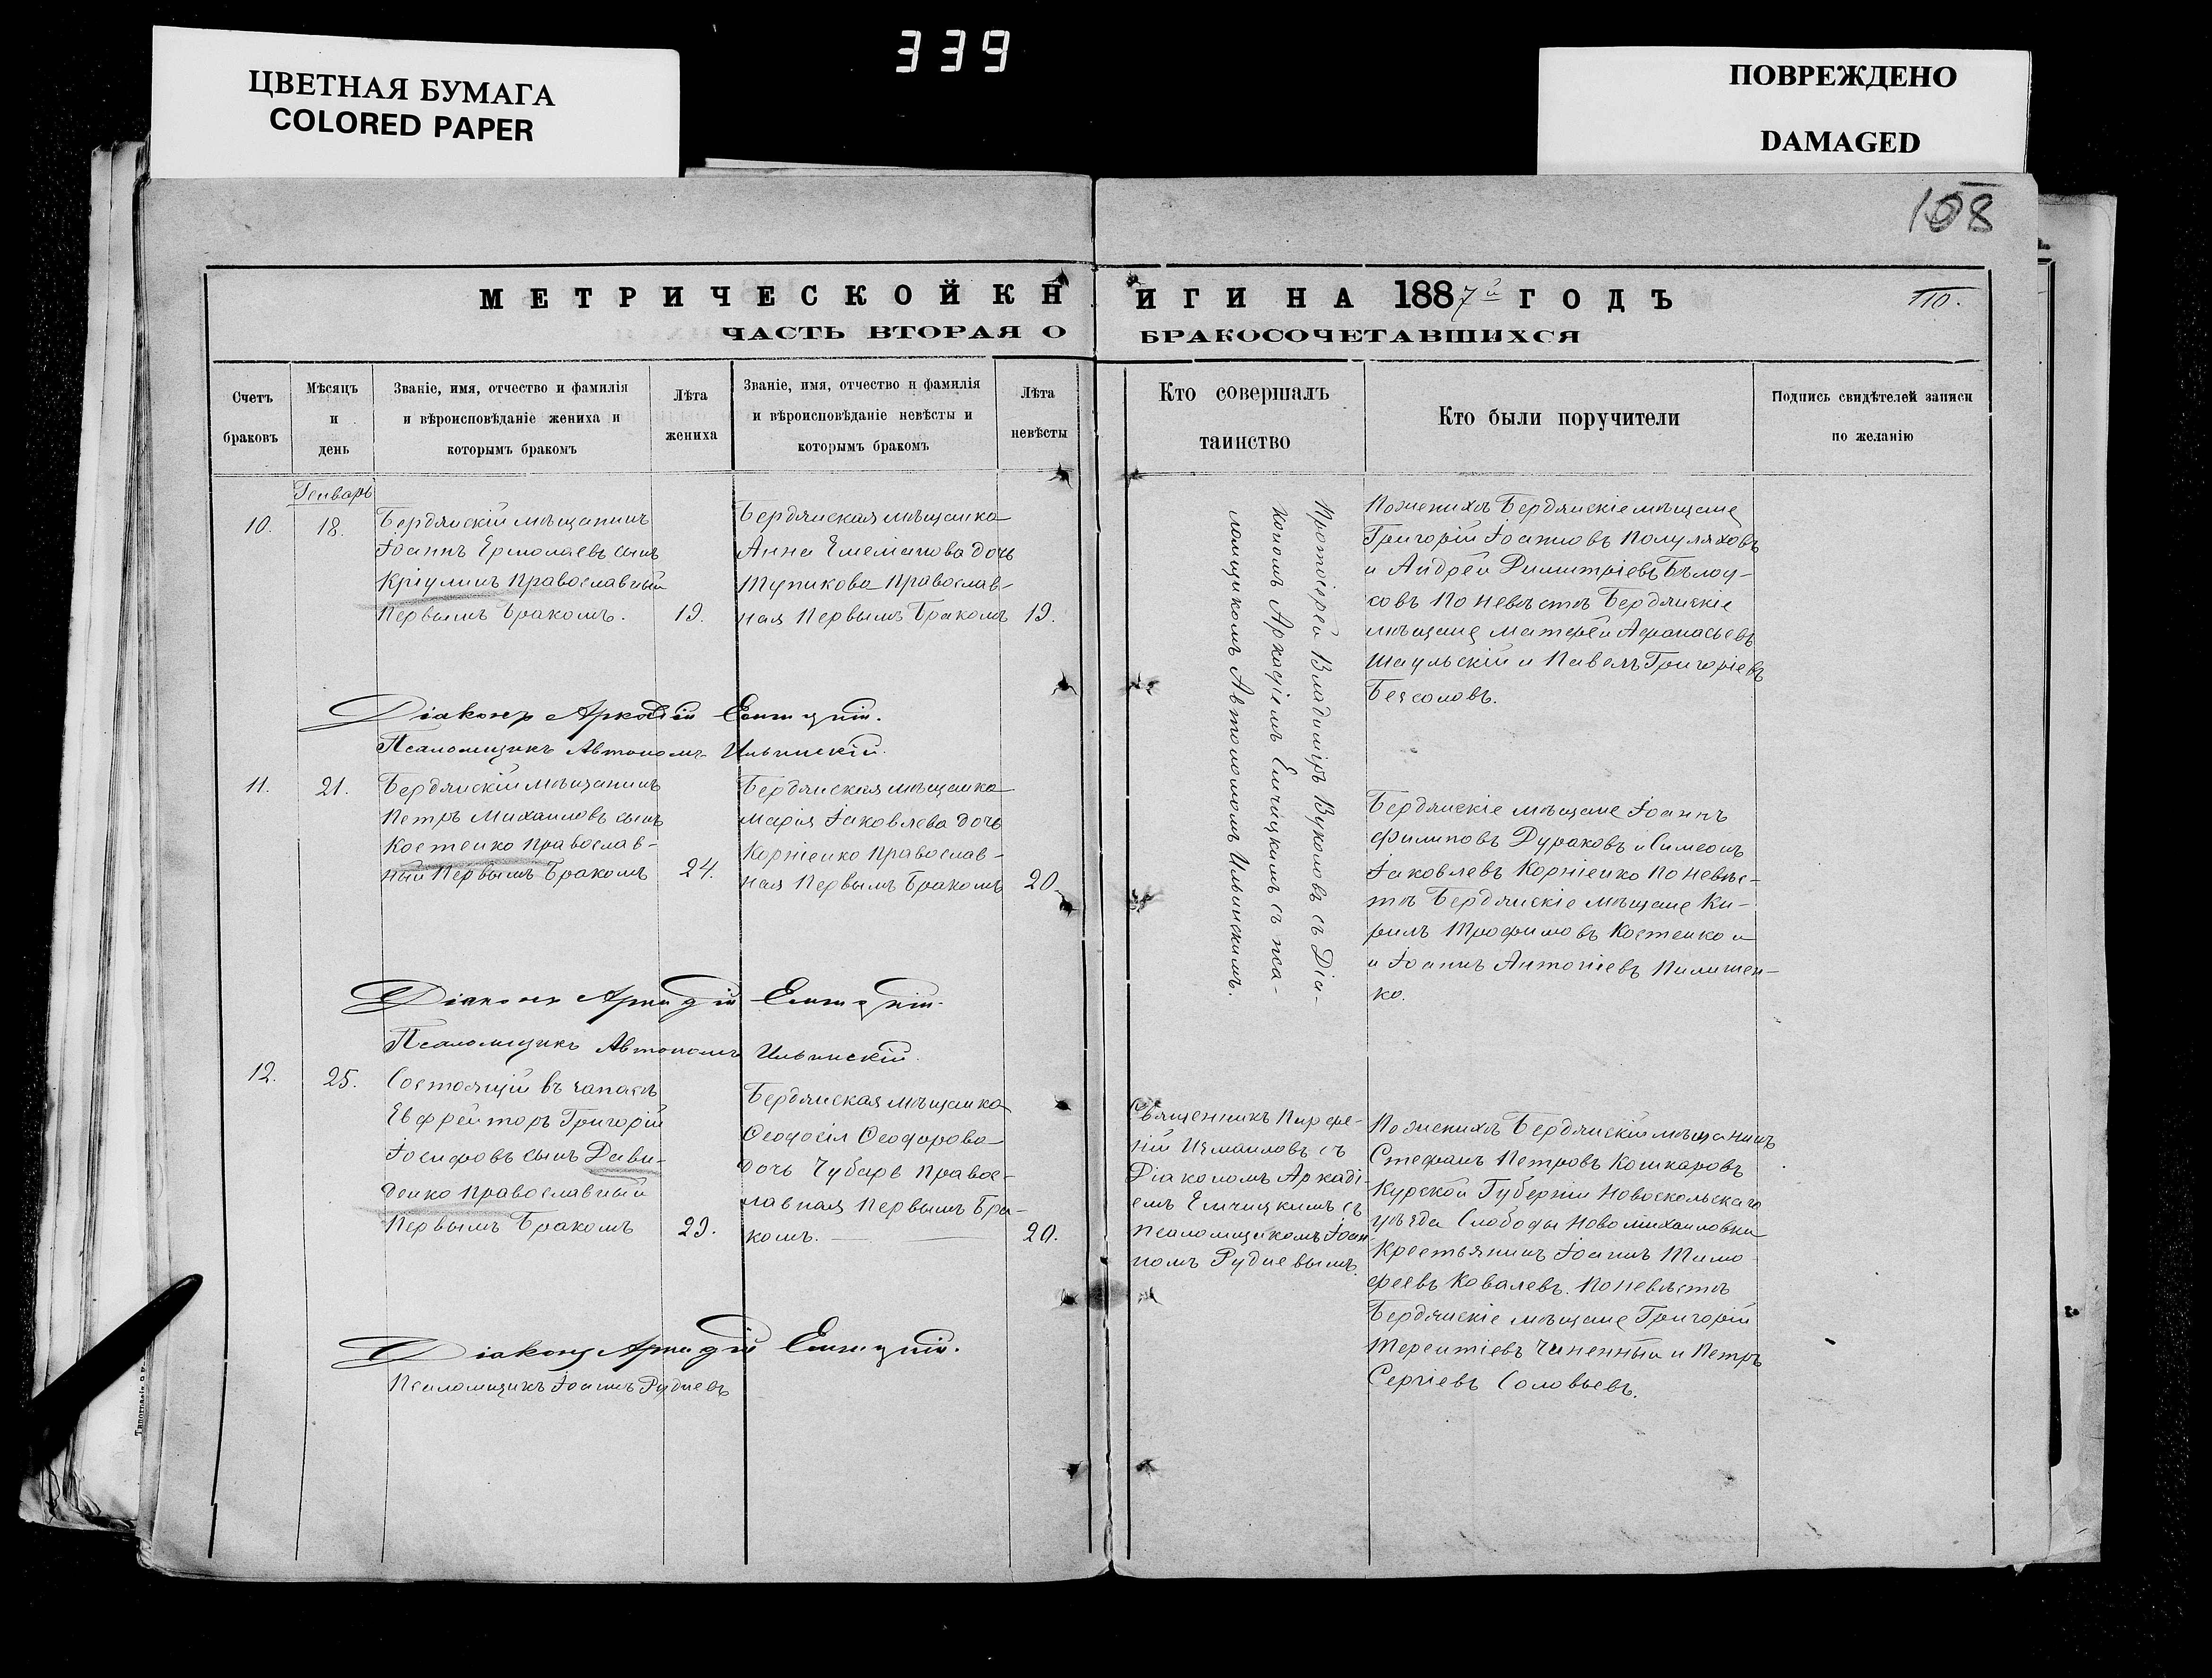 339
ЦВЕТНАЯ БУМАГА
COLORED PAPER
ПОВРЕЖДЕНО
DAMAGED
108
МЕТРИЧЕСКОЙ КНИГИ НА 1887й ГОДЪ
110.
ЧАСТЬ ВТОРАЯ О БРАКОСОЧЕТАВШИХСЯ
Счетъ
браковъ
Мѣсяцъ
и
день
Званіе, имя, отчество и фамилія
и вѣроисповѣданіе жениха и
которымъ бракомъ
Лѣта
жениха
Званіе, имя, отчество и фамилія
и вѣроисповѣданіе невѣсты и
которымъ бракомъ
Лѣта
невѣсты
Кто совершалъ
таинство
Кто были поручители
Подпись свидѣтелей записи
по желанію
Генварь
10.
18.
Бердянскій мѣщанинъ
Іоаннъ Ермолаевъ сынъ
Кріулинъ Православный
Первымъ Бракомъ.
19.
Бердянская мѣщанка
Анна Емельянова дочь
Тупикова Православ-
ная Первымъ Бракомъ
19.
Протоіерей Владиміръ Вуколовъ съ Діа-
кономъ Аркадіемъ Елчицкимъ съ пса-
ломщикомъ Автономомъ Ильинскимъ.
По женихѣ Бердянскіе мѣщане
Григорій Іоанновъ Полуляховъ
и Андрей Димитріевъ Бѣлоу-
совъ По невѣстѣ Бердянскіе
мѣщане Матфей Афанасьевъ
Шаульскій и Павелъ Григоріевъ
Безсоловъ.
Діаконъ Аркадій Елчицкій.
Псаломщикъ Автономъ Ильинскій.
11.
21.
Бердянскій мѣщанинъ
Петръ Михаиловъ сынъ
Костенко Православ-
ный Первымъ Бракомъ
24.
Бердянская мѣщанка
Марія Іаковлева дочь
Корніенко Православ-
ная Первымъ Бракомъ
20.
Бердянскіе мѣщане Іоаннъ
Филиповъ Дураковъ и Симеонъ
Іаковлевъ Корніенко По невѣс-
тѣ Бердянскіе мѣщане Ки-
рилъ Трофимовъ Костенко и
и Іоаннъ Антоніевъ Пилипен-
ко.
Діаконъ Аркадій Елчицкій.
Псаломщикъ Автономъ Ильинскій.
12.
25.
Состоящій въ запасѣ
Ефрейторъ Григорій
Іосифовъ сынъ Дави-
денко Православный
Первымъ Бракомъ
29.
Бердянская мѣщанка
Ѳеодосія Ѳеодорова
дочь Чубарь Правос-
лавная Первымъ Бра-
комъ.
20.
Священникъ Парфе-
ній Измаиловъ съ
Діакономъ Аркаді-
емъ Елчицкимъ съ
псаломщикомъ Іоан
номъ Рудневымъ.
По женихѣ Бердянскій мѣщанинъ
Стефанъ Петровъ Кошкаровъ
Курской Губерніи Новоскольскаго
уѣзда Слободы Новомихаиловки
Крестьянинъ Іоаннъ Тимо
феевъ Ковалевъ. По невѣстѣ
Бердянскіе мѣщане Григорій
Терентіевъ Чиненный и Петръ
Сергіевъ Соловьевъ.
Діаконъ Аркадій Елчицкій.
Псаломщикъ Іоаннъ Рудневъ